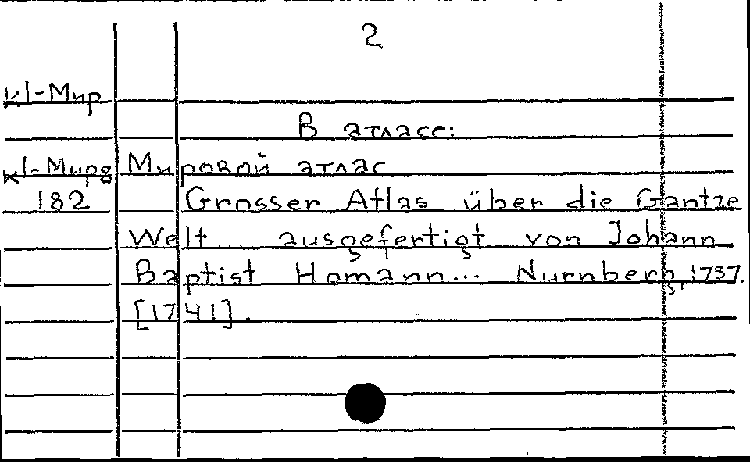 2
к1-Мир
В атласе:
к1-Миров Мировой атлас
182 Grosser Atlas über die Gantze
Welt ausgefertigt von Johann
Baptist Homann... Nurnberg, 1737.
[1741].